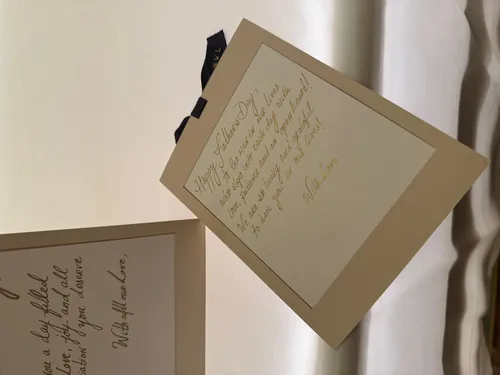 Happy Father's Day
To the man in our lives
who steps into each day with
love, patience and an open heart!
We are so lucky and grateful
to have you in our lives!
With Love
you a day filled
love, joy and all
you deserve
With all our Love,